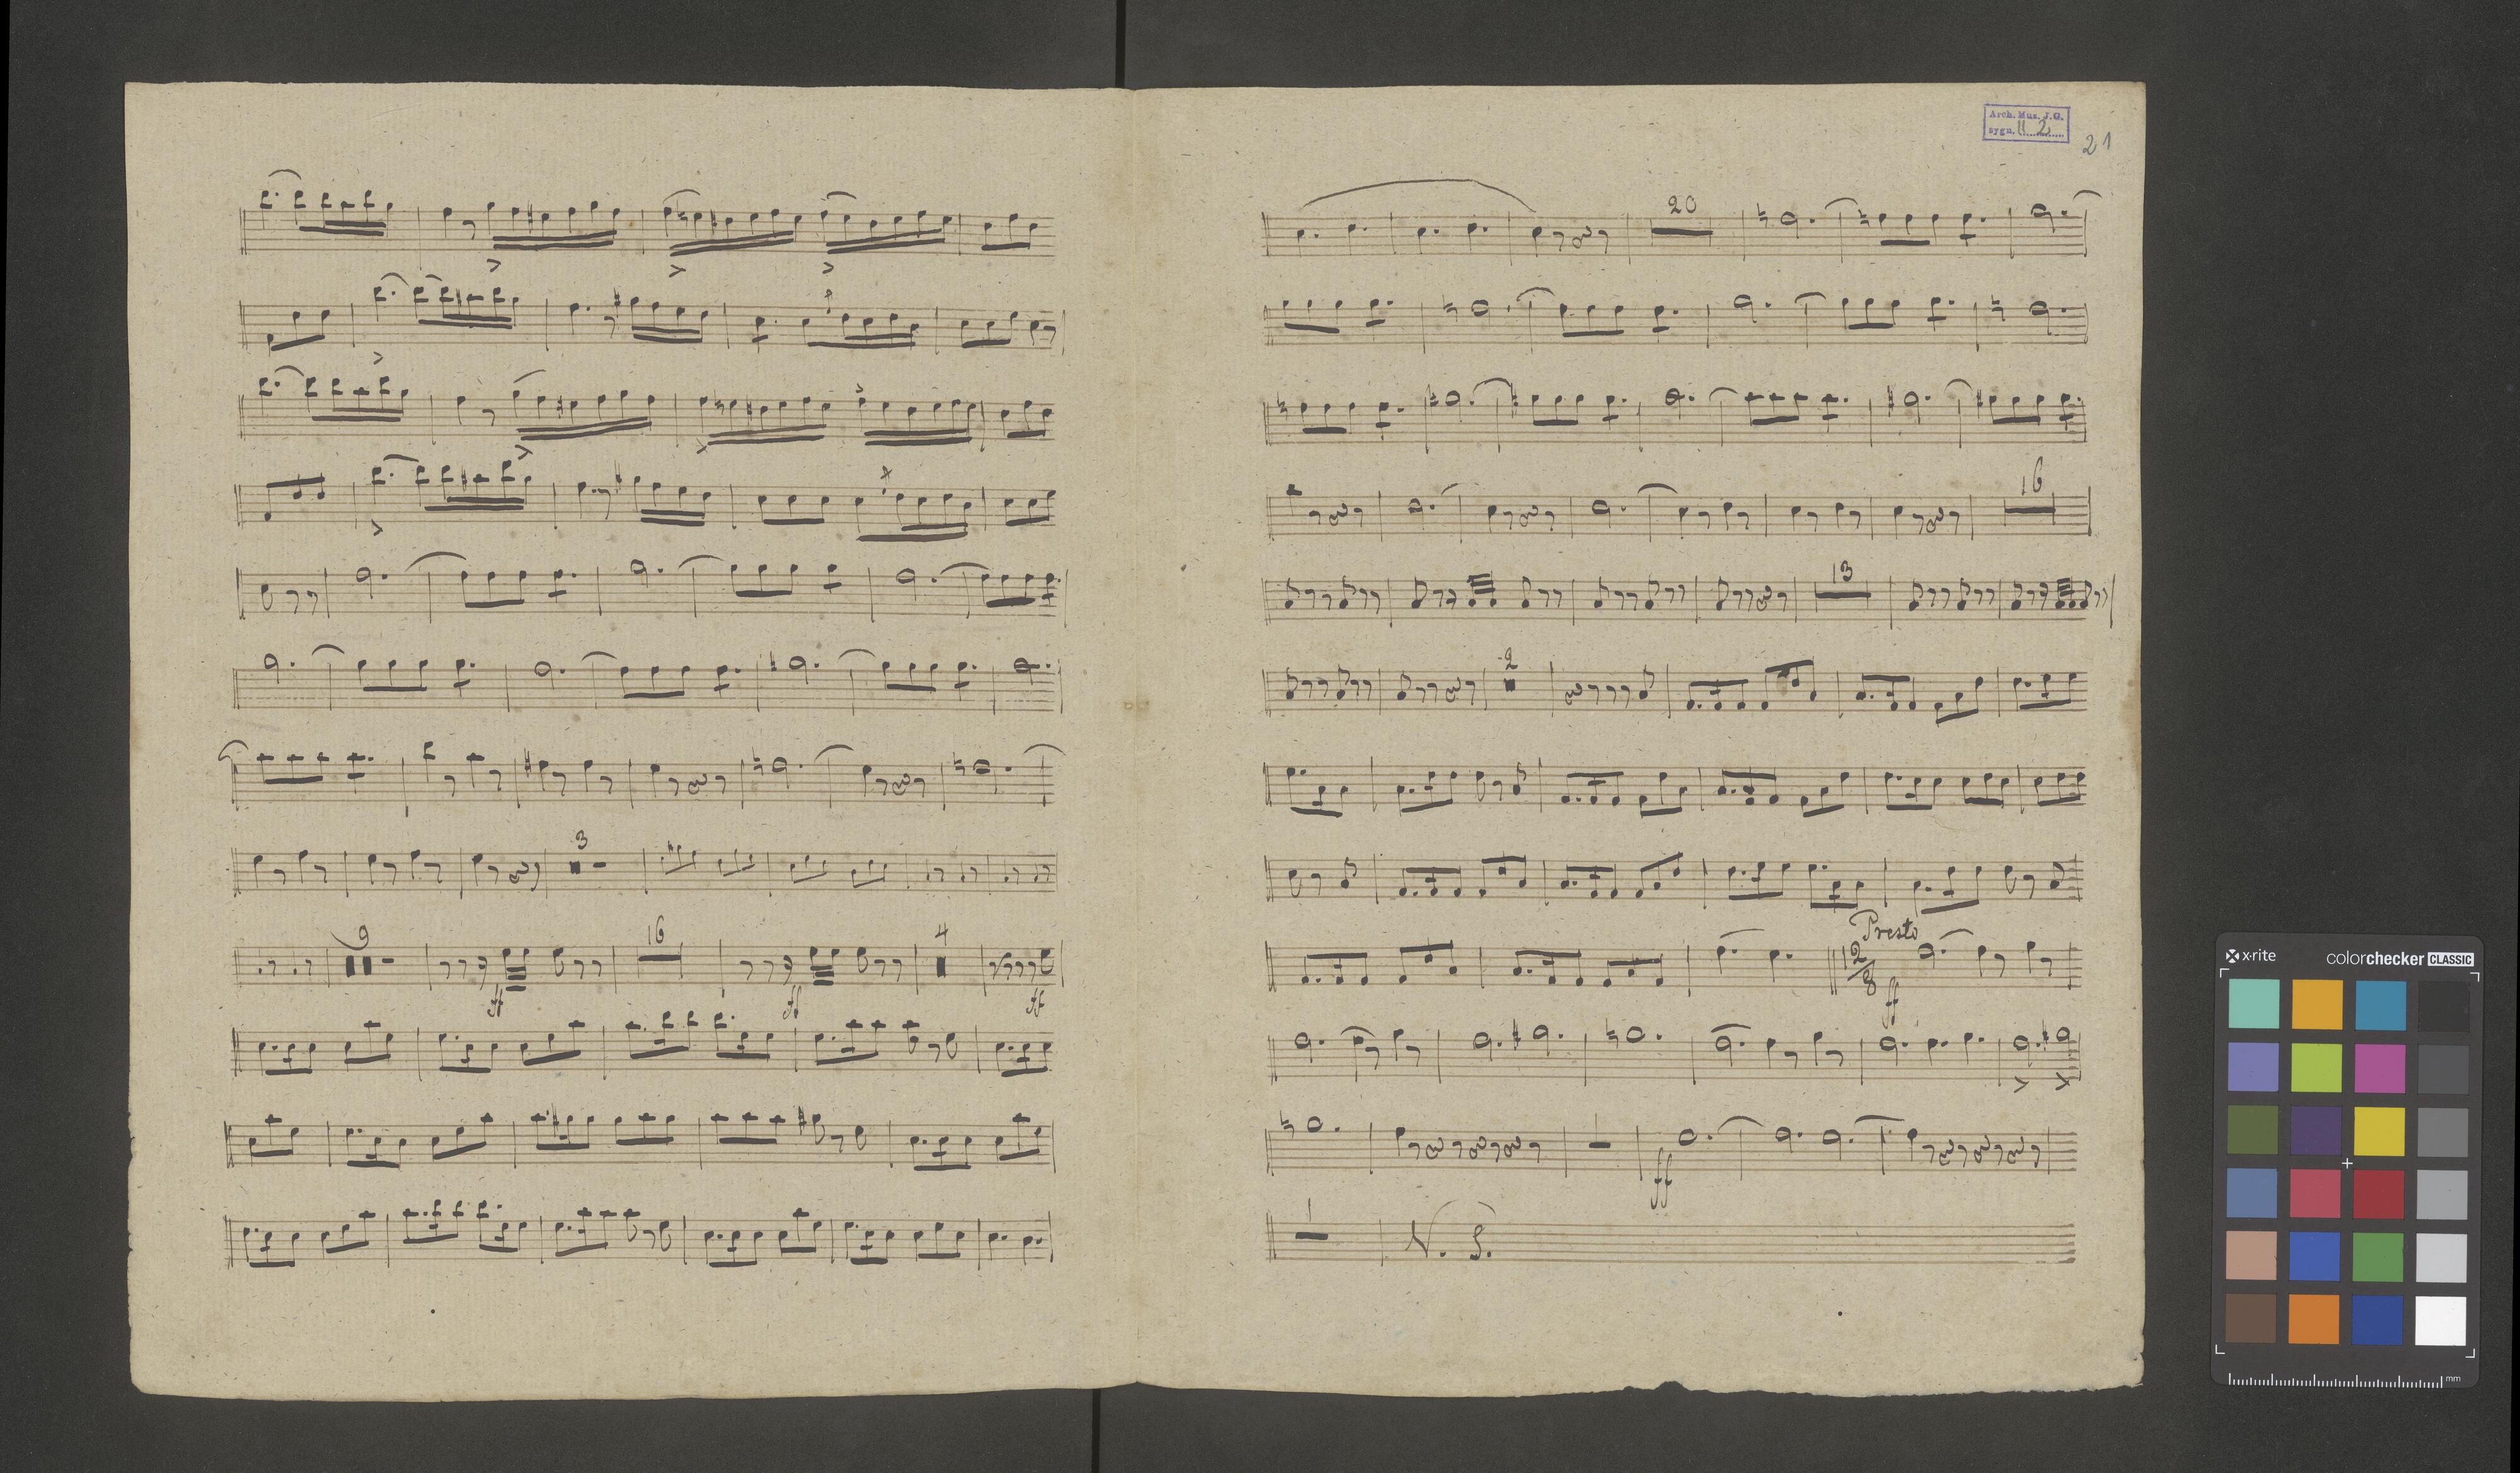 3
9
16
4
ff
ff
ff
Arch. Mus. J.G.
sygn. II 2
21
20
16
13
2
Presto
12
8
ff
ff
1
V. S.
x-rite
colorchecker CLASSIC
mm